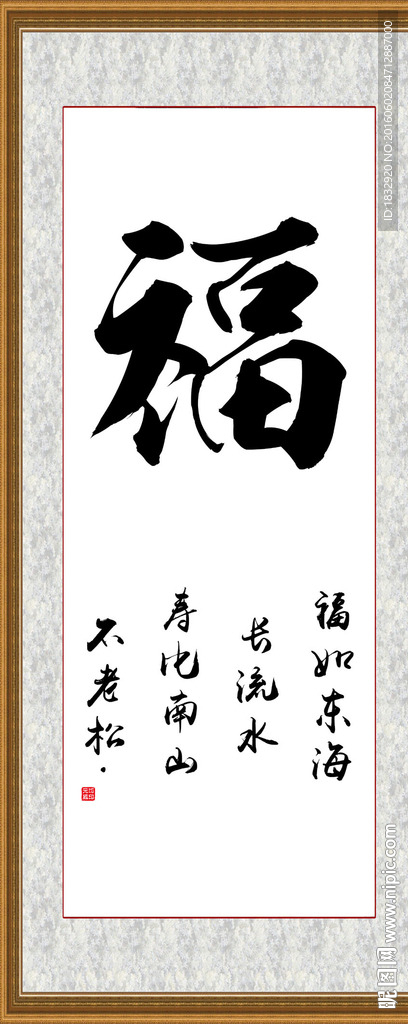 福
福如东海
长流水
寿比南山
不老松.
ID:1832920 NO:20160602084712887000
昵图网 www.nipic.com